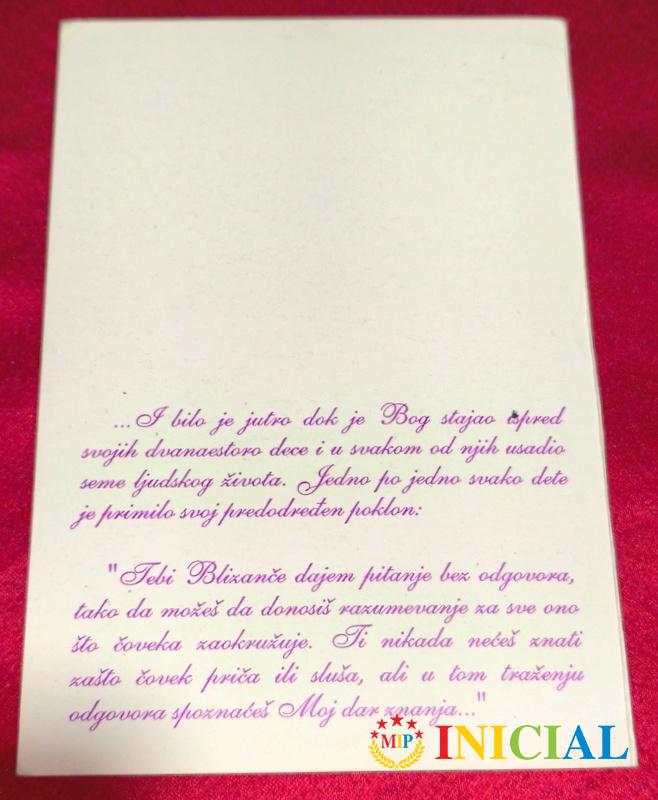 ...I bilo je jutro dok je Bog stajao ispred
svojih dvanaestoro dece i u svakom od njih usadio
seme ljudskog života. Jedno po jedno svako dete
je primilo svoj predodređen poklon:
"Tebi Blizanče dajem pitanje bez odgovora,
tako da možeš da donosiš razumevanje za sve ono
što čoveka zaokružuje. Ti nikada nećeš znati
zašto čovek priča ili sluša, ali u tom traženju
odgovora spoznaćeš Moj dar znanja..."
MIP INICIAL